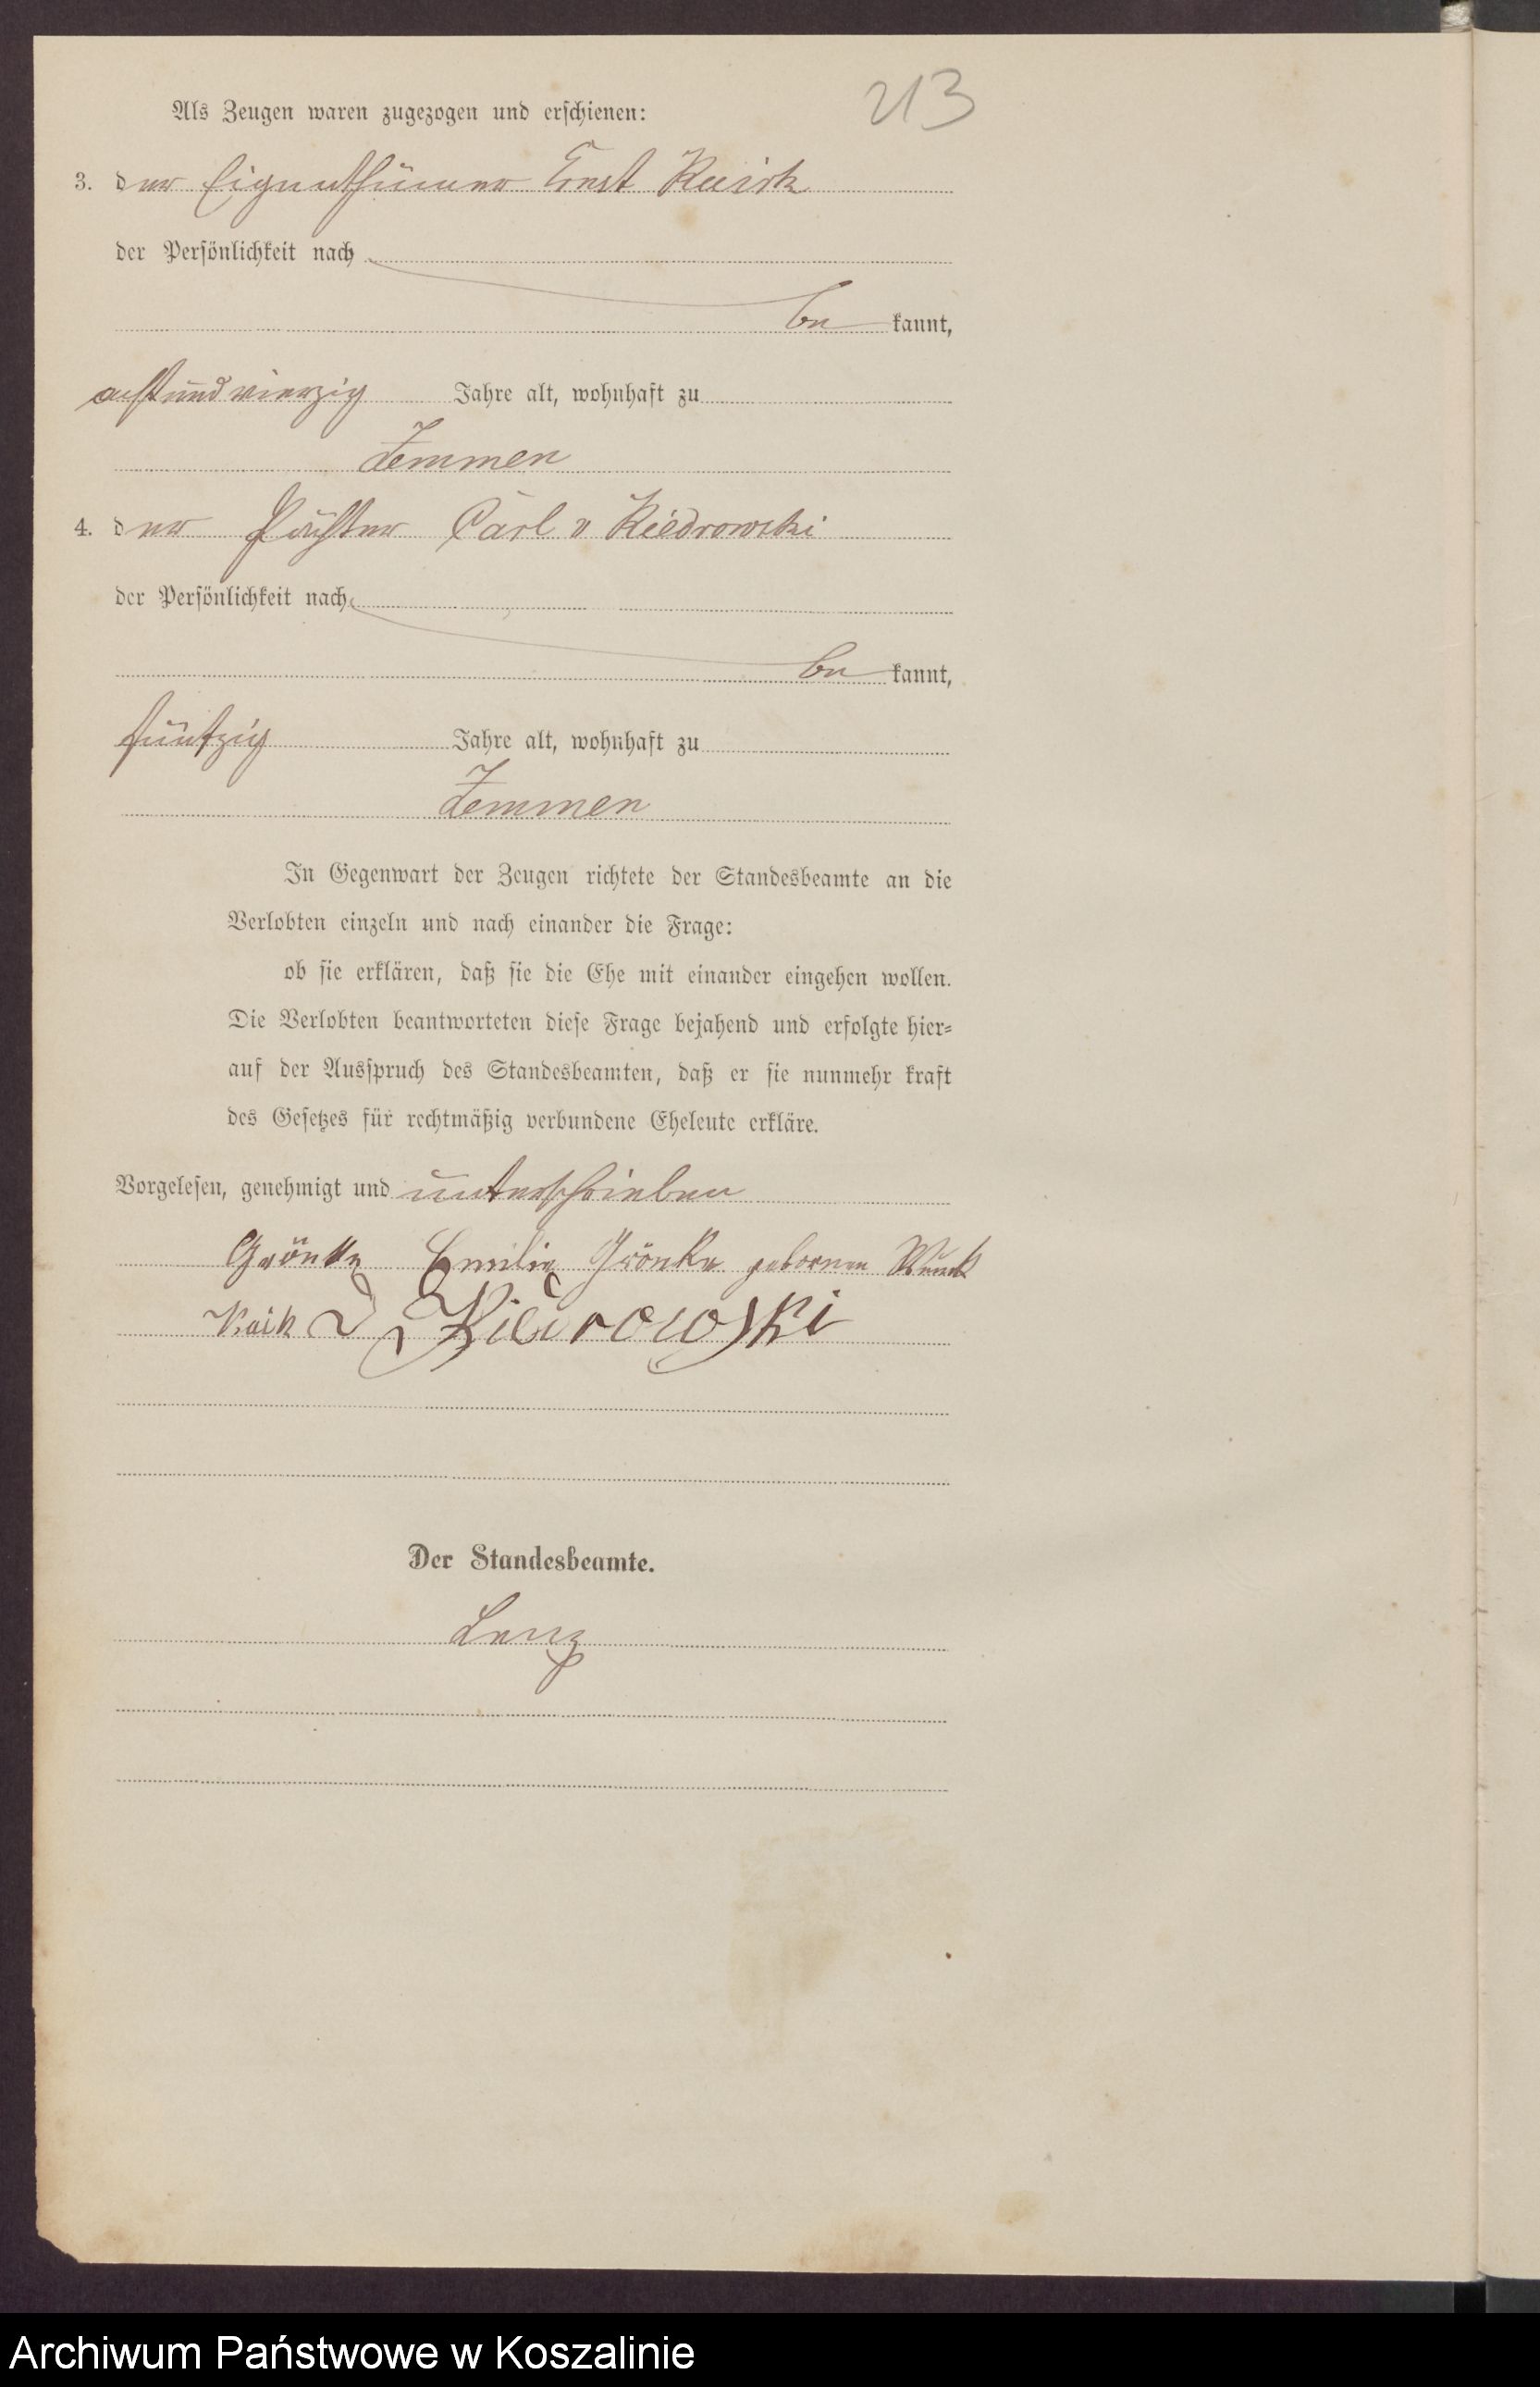 213
Als Zeugen waren zugezogen und erschienen:
3. der Eigenthümer Ernst
der Persönlichkeit nach
be kannt,
achtundvierzig Jahre alt, wohnhaft zu
Zemmen
4. der Pächter Carl v Kiedrowski
der Persönlichkeit nach
be kannt,
fünfzig Jahre alt, wohnhaft zu
Zemmen
In Gegenwart der Zeugen richtete der Standesbeamte an die
Verlobten einzeln und nach einander die Frage:
ob sie erklären, daß sie die Ehe mit einander eingehen wollen.
Die Verlobten beantworteten diese Frage bejahend und erfolgte hier-
auf der Ausspruch des Standesbeamten, daß er sie nunmehr kraft
des Gesetzes für rechtmäßig verbundene Eheleute erkläre.
Vorgelesen, genehmigt und unterschrieben
Grönke Emilie Grönke geborene
Kiedrowski
Der Standesbeamte.
Lenz
Archiwum Państwowe w Koszalinie